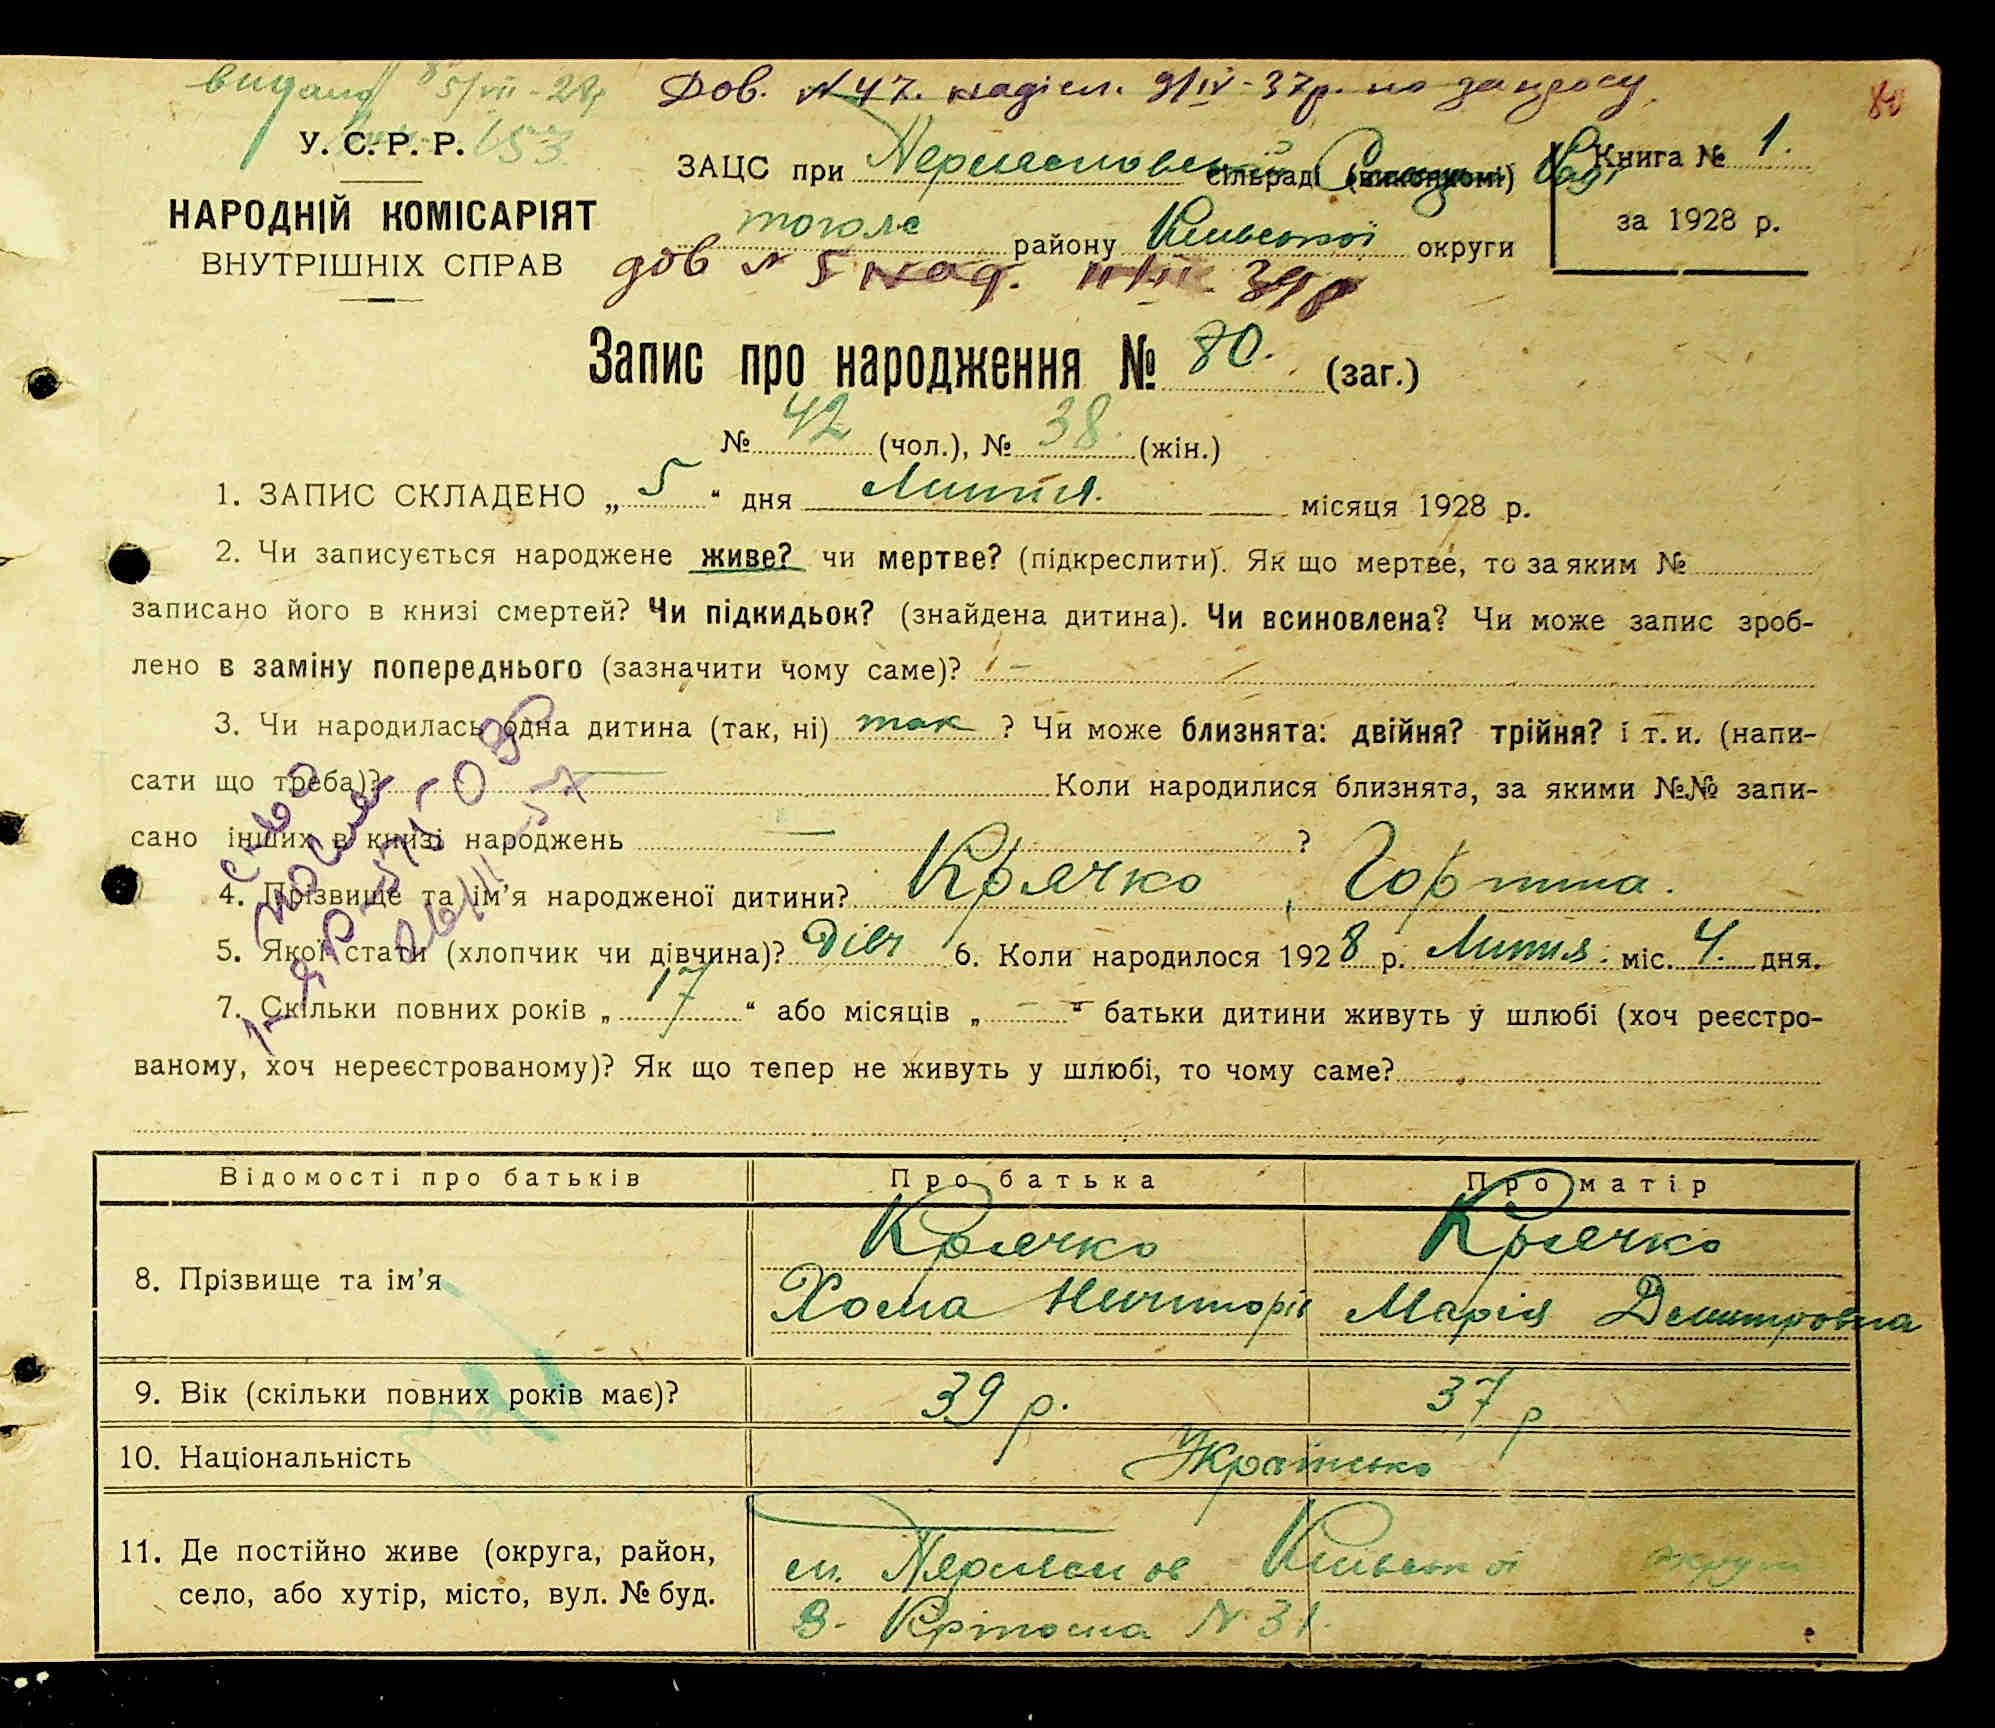 видано 5/VII-28р
Дов. № 47. надісл. 9/IV-37р. по запросу
80
У. С. Р. Р. 153
НАРОДНІЙ КОМІСАРІЯТ
ВНУТРІШНІХ СПРАВ
ЗАЦС при сільраді (виконкомі)
тогож району Київської округи
Книга № 1.
за 1928 р.
дов № 5 над. 39р
Запис про народження № 80. (заг.)
№ 42 (чол.), № 38. (жін.)
1. ЗАПИС СКЛАДЕНО „ 5 “ дня Липня. місяця 1928 р.
2. Чи записується народжене живе? чи мертве? (підкреслити). Як що мертве, то за яким №
записано його в книзі смертей? Чи підкидьок? (знайдена дитина). Чи всиновлена? Чи може запис зроб-
лено в заміну попереднього (зазначити чому саме)? –
3. Чи народилась одна дитина (так, ні) так ? Чи може близнята: двійня? трійня? і т. и. (напи-
сати що треба)? — Коли народилися близнята, за якими №№ запи-
сано інших в книзі народжень — ?
4. Прізвище та ім’я народженої дитини? Крячко, Горпина.
5. Якої стати (хлопчик чи дівчина)? Дівч 6. Коли народилося 1928 р. Липня. міс. 4. дня.
7. Скільки повних років „ 17 “ або місяців „ – “ батьки дитини живуть у шлюбі (хоч реєстро-
ваному, хоч нереєстрованому)? Як що тепер не живуть у шлюбі, то чому саме?
Відомості про батьків Про батька Про матір
8. Прізвище та ім’я Крячко Крячко
Хома Ничипорів Марія Демитровна
9. Вік (скільки повних років має)? 39 р. 37 р
10. Національність Українсько
11. Де постійно живе (округа, район, м. Київської округи
село, або хутір, місто, вул. № буд. В. № 31.